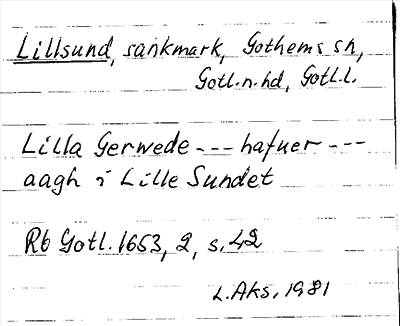 Lillsund, sankmark, Gothems sn,
Gotl.n.hd, Gotl.l.
Lilla Gerwede --- hafuer ---
aagh i Lille Sundet
Rb Gotl. 1653, 2, s. 42
L.Aks. 1981